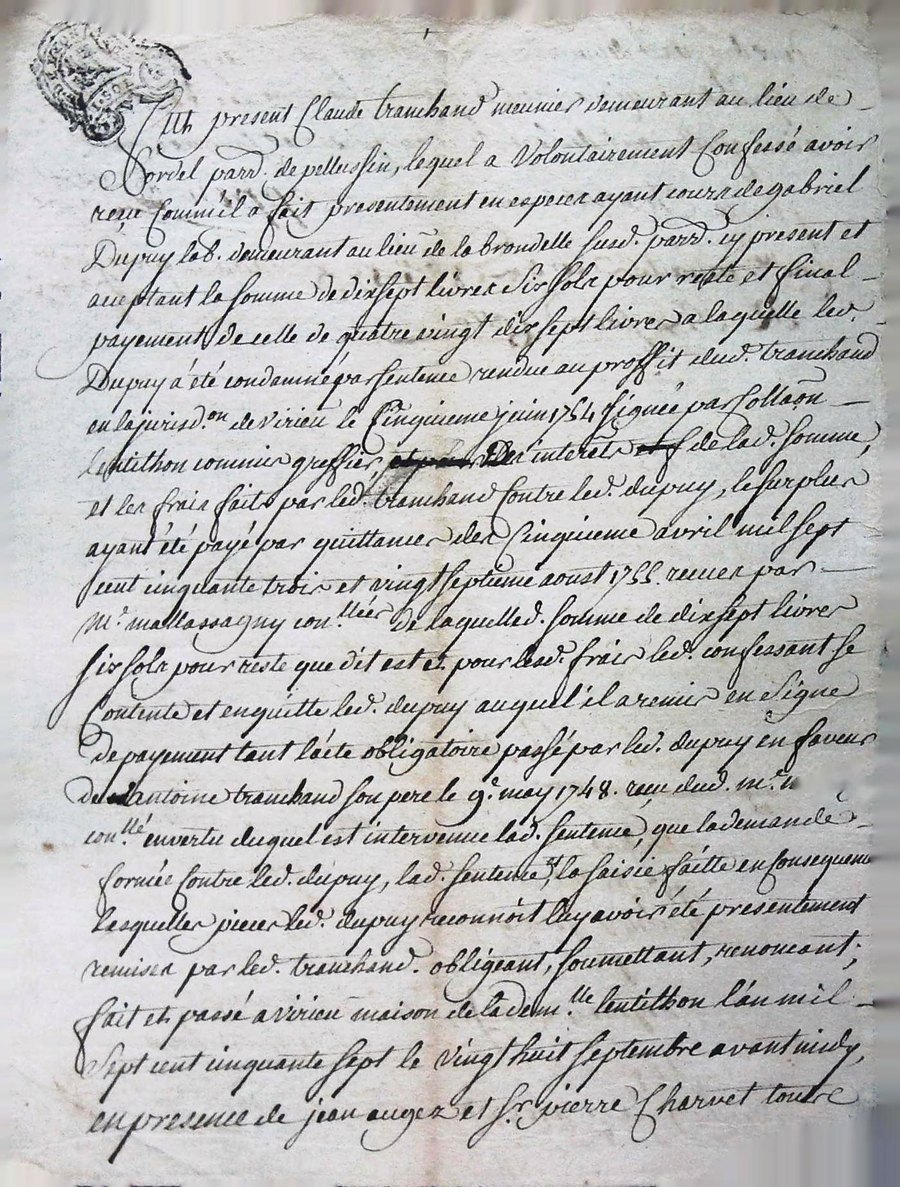 Fut present Claude tranchand meunier demeurant au lieu de
Sordel parr. de pellussin, lequel a Volontairement Confessé avoir
reçu Comm'il a fait presentement en especes ayant cours de gabriel
Dupuy lab. demeurant au lieu de la brondelle susd. parr. cy present et
acceptant la somme de dix sept livres six sols pour reste et final
payement de celle de quatre vingt dix sept livres a laquelle led.
Dupuy a été condamné par sentence rendue au proffit dud. tranchand
en la jurisd.on de virieu le Cinquieme juin 1754 signée par
Lentithon commis greffier, interets de lad. somme,
et les frais faits par led. tranchand Contre led. dupuy, le surplus
ayant été payé par quittances des Cinquieme avril mil sept
cent cinquante trois et vingt septieme aoust 1755 recues par
m.e mallassagny con.llier de laquelled. somme de dix sept livres
six sols pour reste que dit est et pour lesd. frais led. confessant se
Contente et en quitte led. dupuy auquel il a remis en signe
de payement tant l'acte obligatoire passé par led. dupuy en faveur
de antoine tranchand son pere le 9.e may 1748. reçu dud. m.e
con.llé en vertu duquel est intervenue lad. sentence, que la demande
formée Contre led. dupuy, lad. sentence, et la saisie faitte en Consequence
Lesquelles pieces led. dupuy reconnoit luy avoir été presentement
remises par led. tranchand. obligeant, soumettant, renoncant;
fait et passé a virieu maison de la dem.lle lentithon l'an mil
Sept cent cinquante sept le vingt huit septembre avant midy,
en presence de jean augez et Sr. pierre Charvet tous